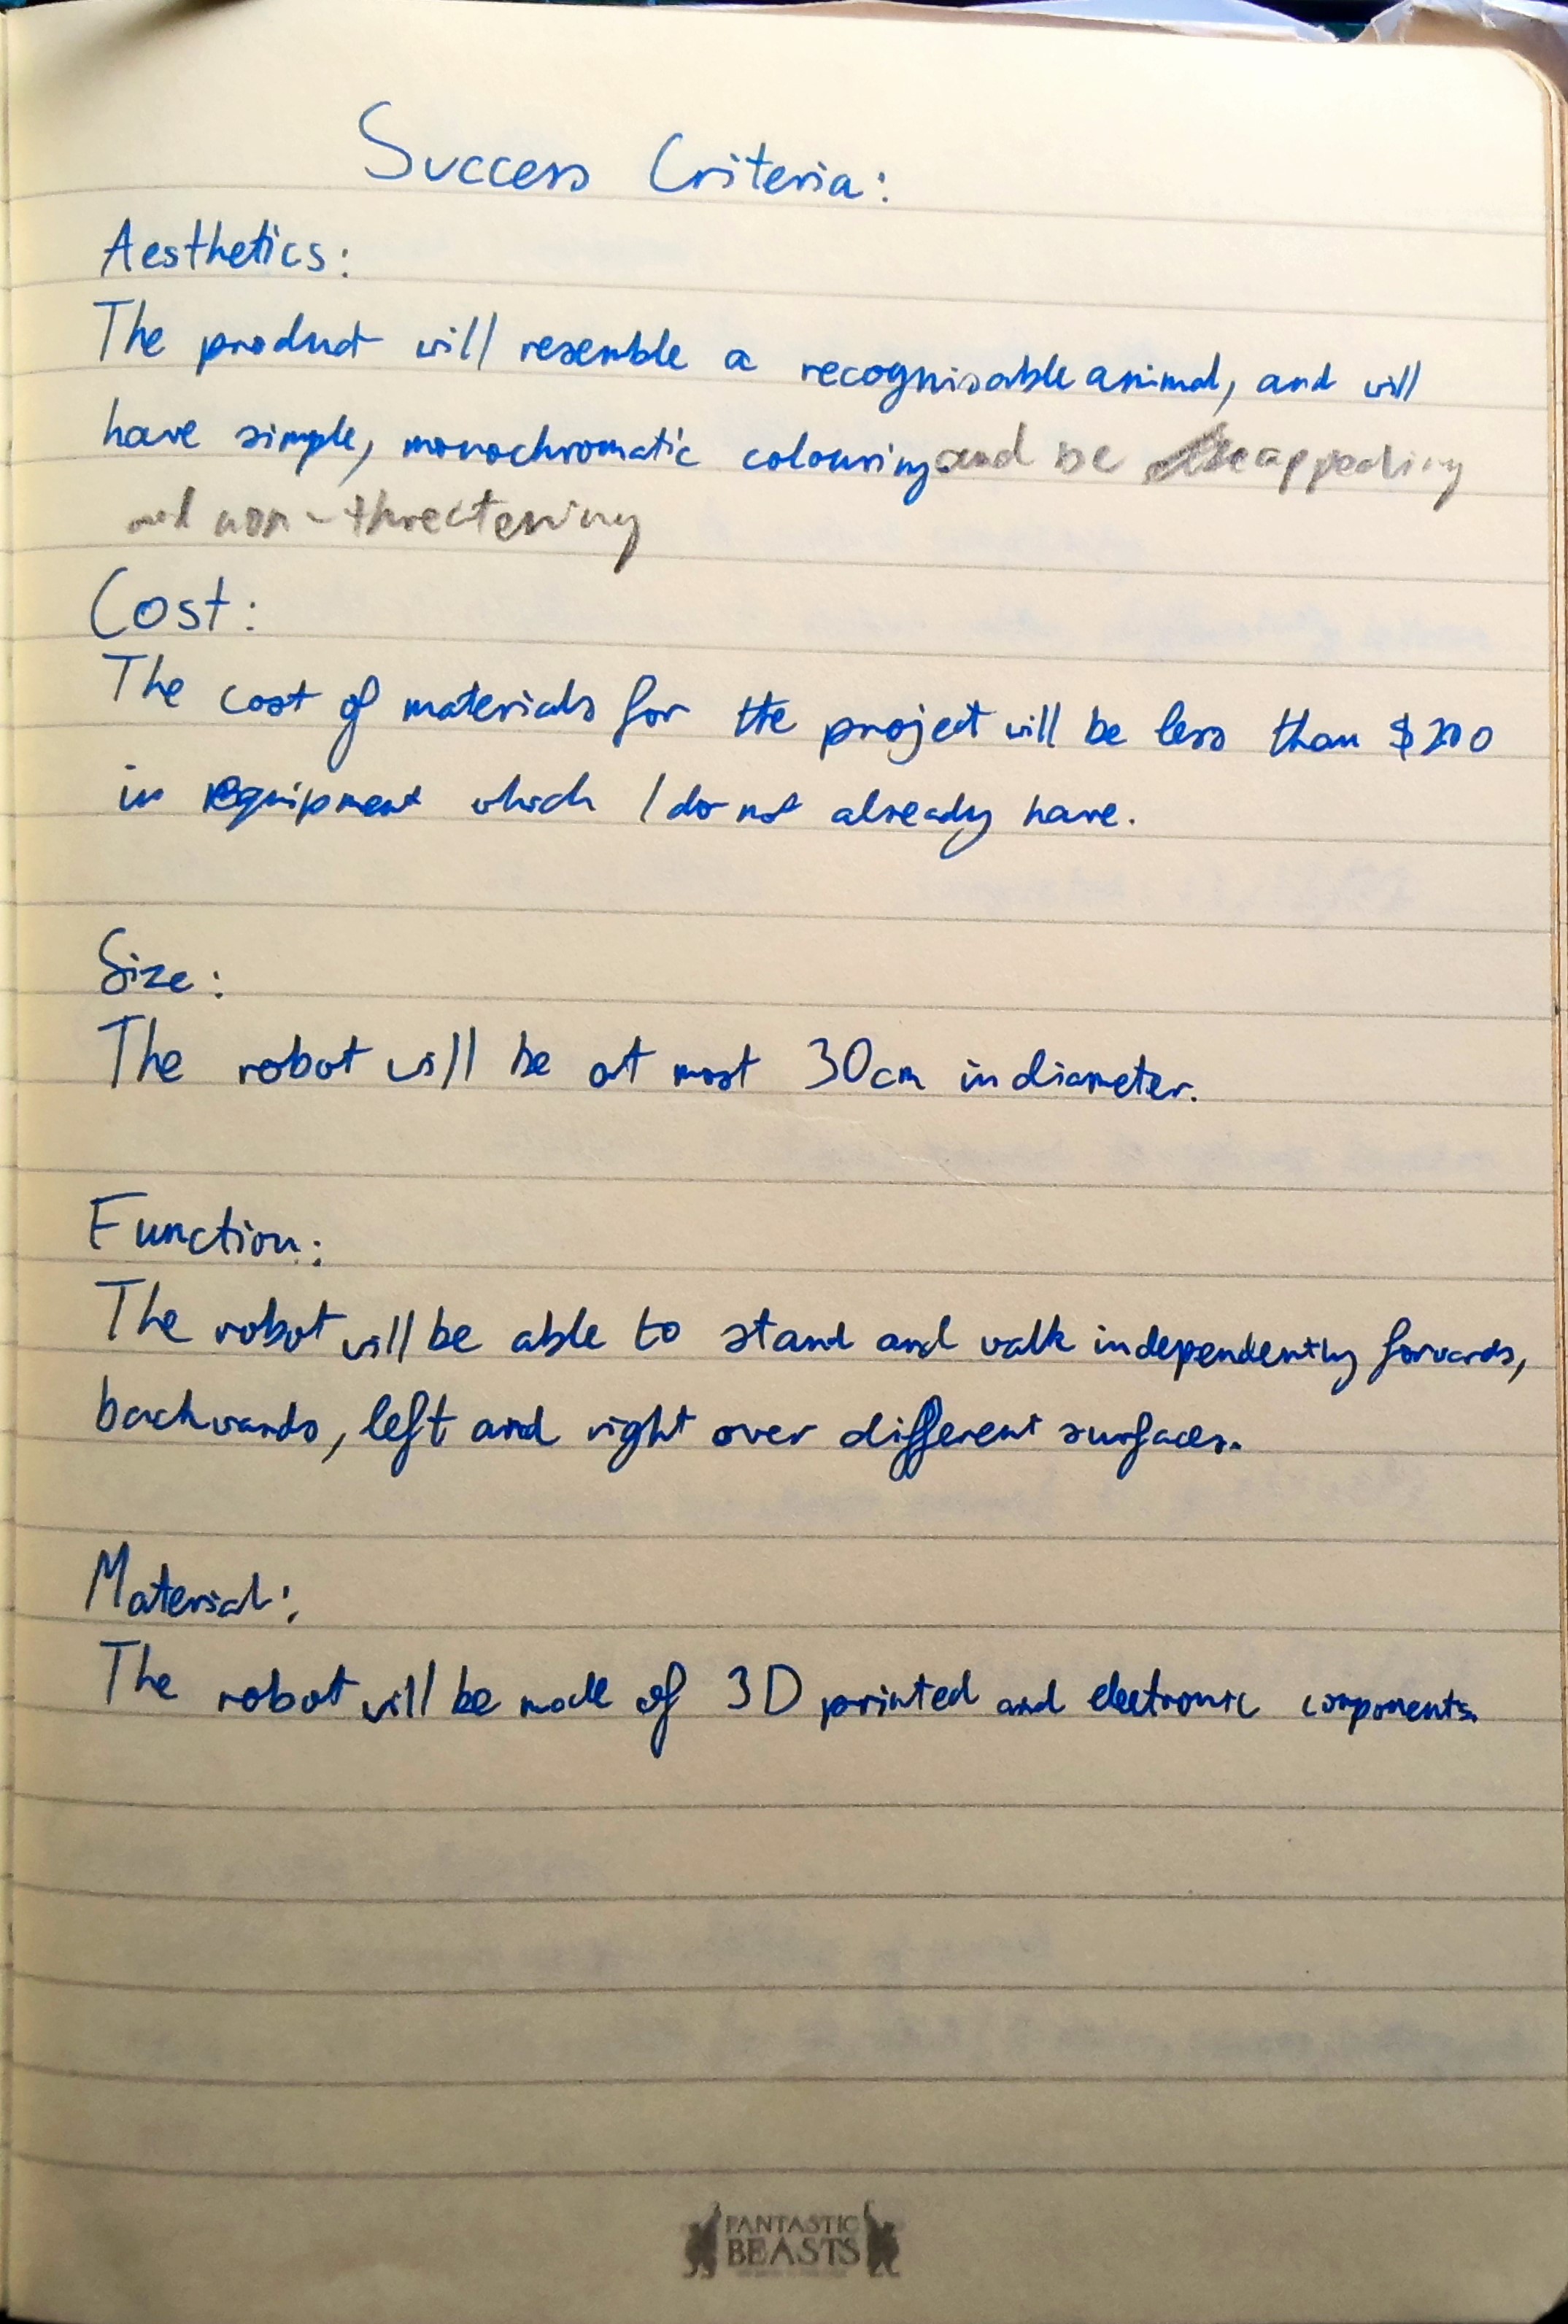 Success Criteria:
Aesthetics:
The product will resemble a recognisable animal, and will
have simple, monochromatic colouring. and be appealing
and non-threatening
Cost:
The cost of materials for the project will be less than $200
in equipment which I do not already have.
Size:
The robot will be at most 30cm in diameter.
Function:
The robot will be able to stand and walk independently forwards,
backwards, left and right over different surfaces.
Material:
The robot will be made of 3D printed and electronic components.
FANTASTIC
BEASTS